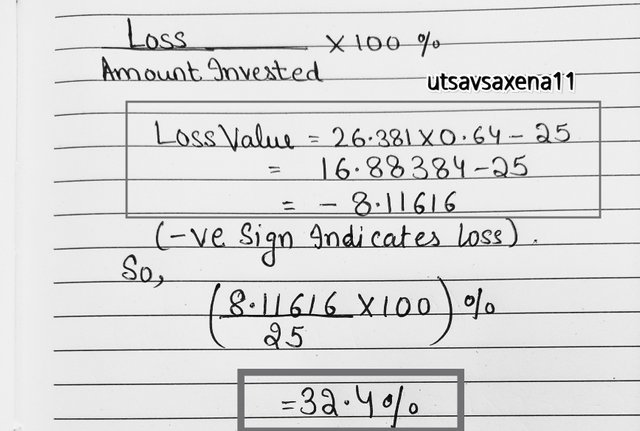 Loss × 100 %
Amount Invested
utsavsaxena11
Loss Value = 26.381×0.64 - 25
= 16.88384-25
= - 8.11616
(-ve Sign Indicates loss).
So,
(8.11616 ×100) %
25
=32.4%